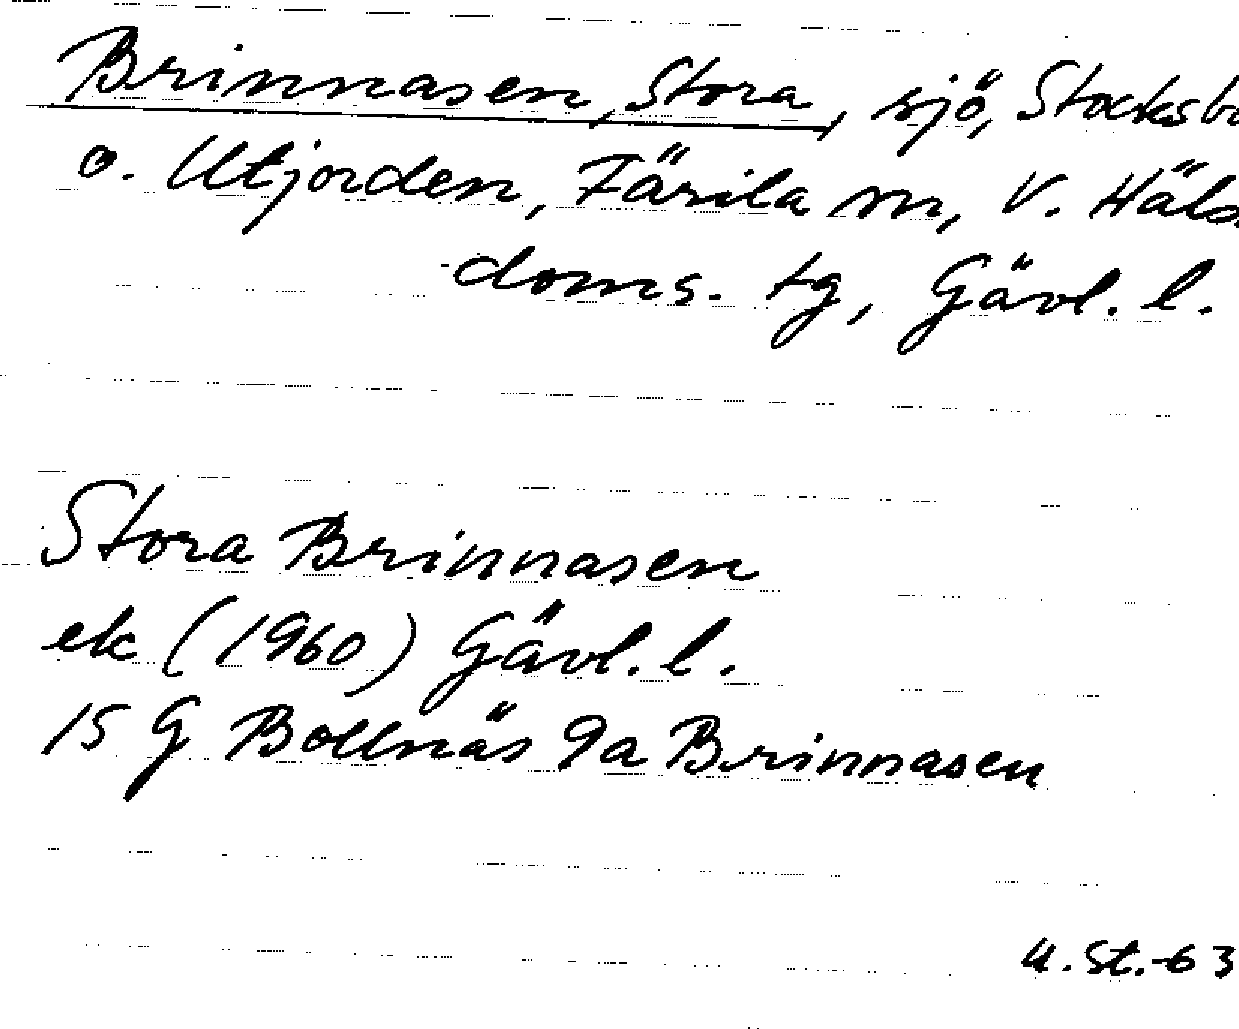 Brinnasen, Stora, sjö, Stocksbo
o. Utjorden, Färila sn, V. Häls.
doms. tg, Gävl. l.
Stora Brinnasen
ek (1960) Gävl. l.
15 G Bollnäs 9a Brinnasen
U. St. -63